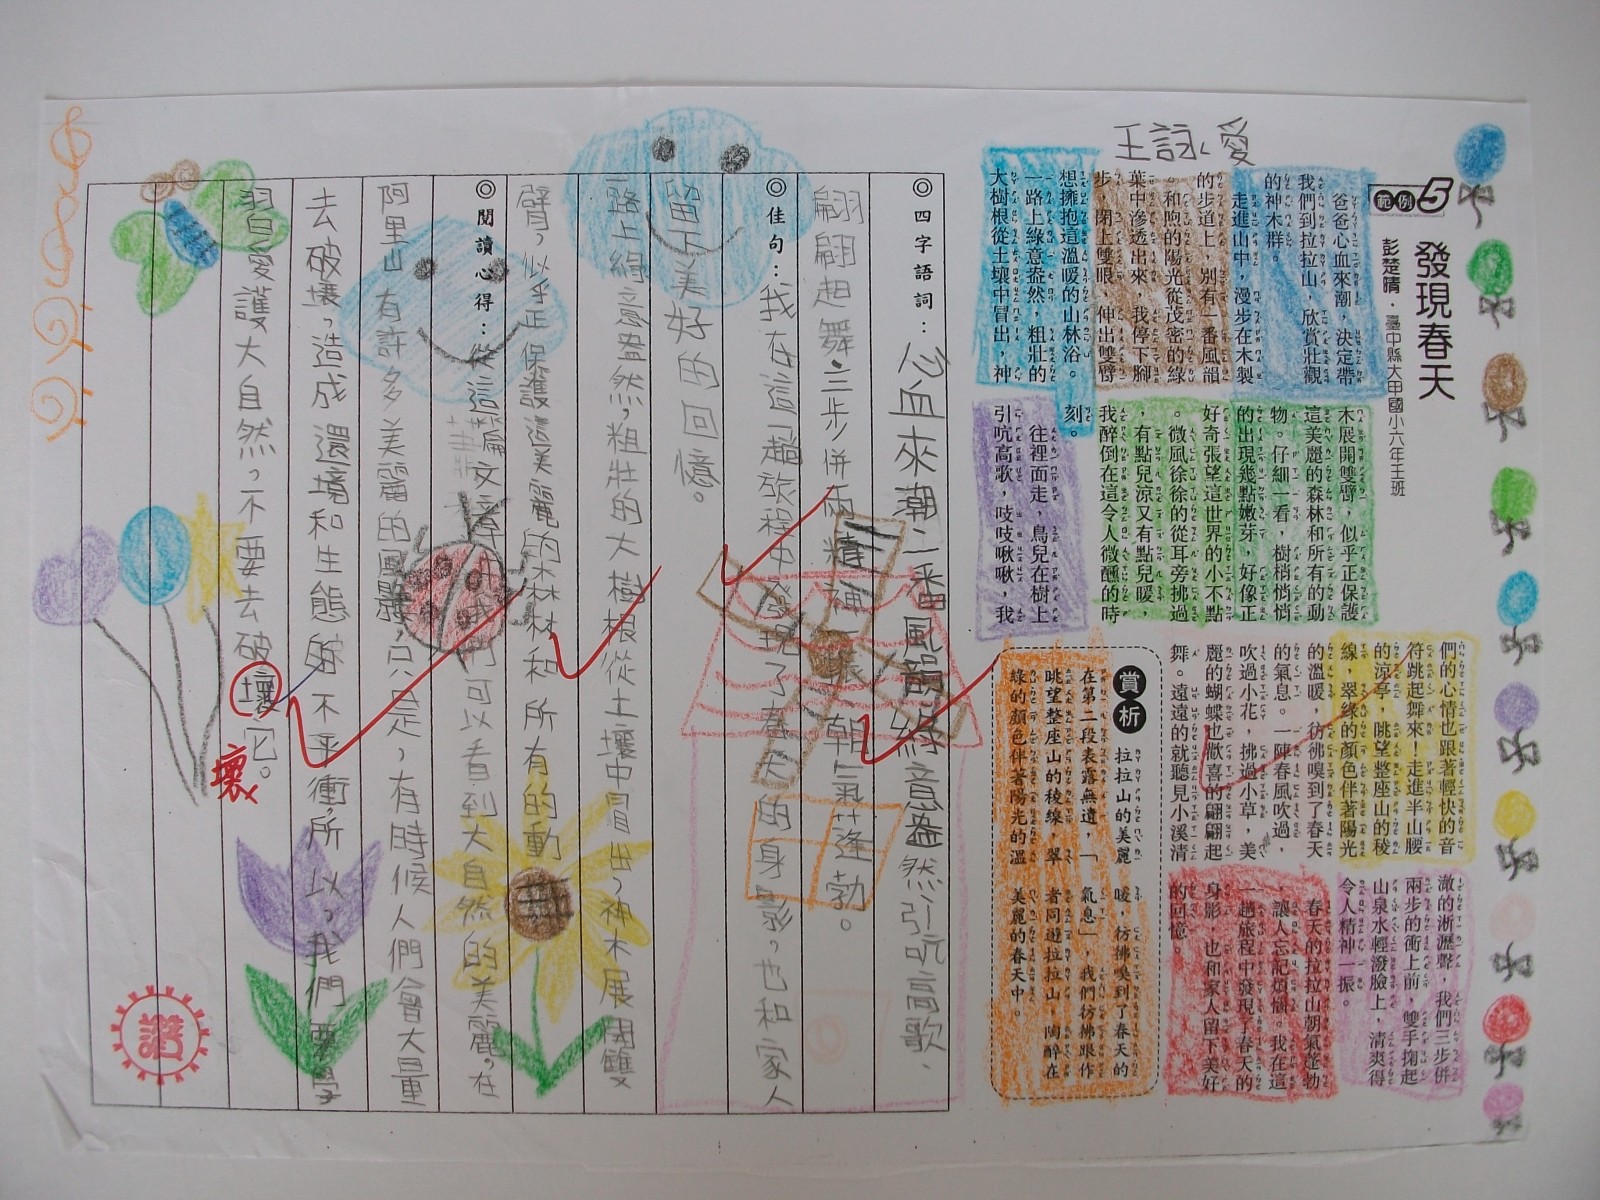 王詠愛
範例5
發現春天
彭楚晴・臺中縣大甲國小六年壬班
爸爸心血來潮，決定帶
我們到拉拉山，欣賞壯觀
的神木群。
走進山中，漫步在木製
的步道上，別有一番風韻
。和煦的陽光從茂密的綠
葉中滲透出來，我停下腳
步，閉上雙眼，伸出雙臂
想擁抱這溫暖的山林浴。
一路上綠意盎然，粗壯的
大樹根從土壤中冒出，神
木展開雙臂，似乎正保護
這美麗的森林和所有的動
物。仔細一看，樹梢悄悄
的出現幾點嫩芽，好像正
好奇張望這世界的小不點
。微風徐徐的從耳旁拂過
，有點兒涼又有點兒暖，
我醉倒在這令人微醺的時
刻。
往裡面走，鳥兒在樹上
引吭高歌，吱吱啾啾，我
們的心情也跟著輕快的音
符跳起舞來！走進半山腰
的涼亭，眺望整座山的稜
線，翠綠的顏色伴著陽光
的溫暖，彷彿嗅到了春天
的氣息。一陣春風吹過，
吹過小花，拂過小草，美
麗的蝴蝶也歡喜的翩翩起
舞。遠遠的就聽見小溪清
澈的淅瀝聲，我們三步併
兩步的衝上前，雙手掬起
山泉水輕潑臉上，清爽得
令人精神一振。
春天的拉拉山朝氣蓬勃
，讓人忘記煩惱。我在這
一趟旅程中發現了春天的
身影，也和家人留下美好
的回憶。
賞析
拉拉山的美麗
在第二段表露無遺，「
眺望整座山的稜線，翠
綠的顏色伴著陽光的溫
暖，彷彿嗅到了春天的
氣息」，我們彷彿跟作
者同遊拉拉山，陶醉在
美麗的春天中。
◎四字語詞：心血來潮、一番風韻、綠意盎然、引吭高歌、
翩翩起舞、三步併兩、精神一振、朝氣蓬勃。
◎佳句：我在這一趟旅程中發現了春天的身影，也和家人
留下美好的回憶。
一路上綠意盎然，粗壯的大樹根從土壤中冒出，神木展開雙
臂，似乎正保護這美麗的森林和所有的動
◎閱讀心得：從這篇文章，我們可以看到大自然的美麗。在
阿里山有許多美麗的風景，只是，有時候人們會大量
去破壞，造成環境和生態的不平衡，所以，我們要學
習愛護大自然，不要去破壞它。
壞